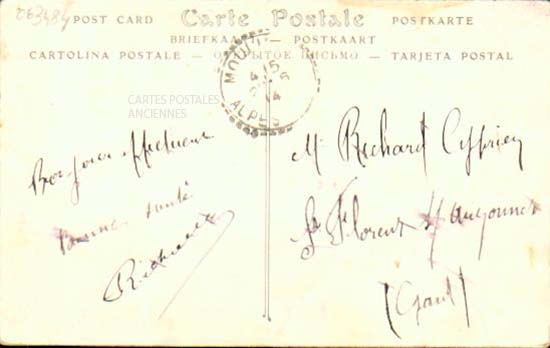 063484
POST CARD Carte Postale POSTKARTE
BRIEFKAART — POSTKAART
CARTOLINA POSTALE — ОТКРЫТОЕ ПИСЬМО — TARJETA POSTAL
4 15
14
ALPES
CARTES POSTALES
ANCIENNES
Bonjour affectueux
Bonne santé
Richard
Mr Richard Cyprien
St Florent s/ Auzonnet
(Gard)